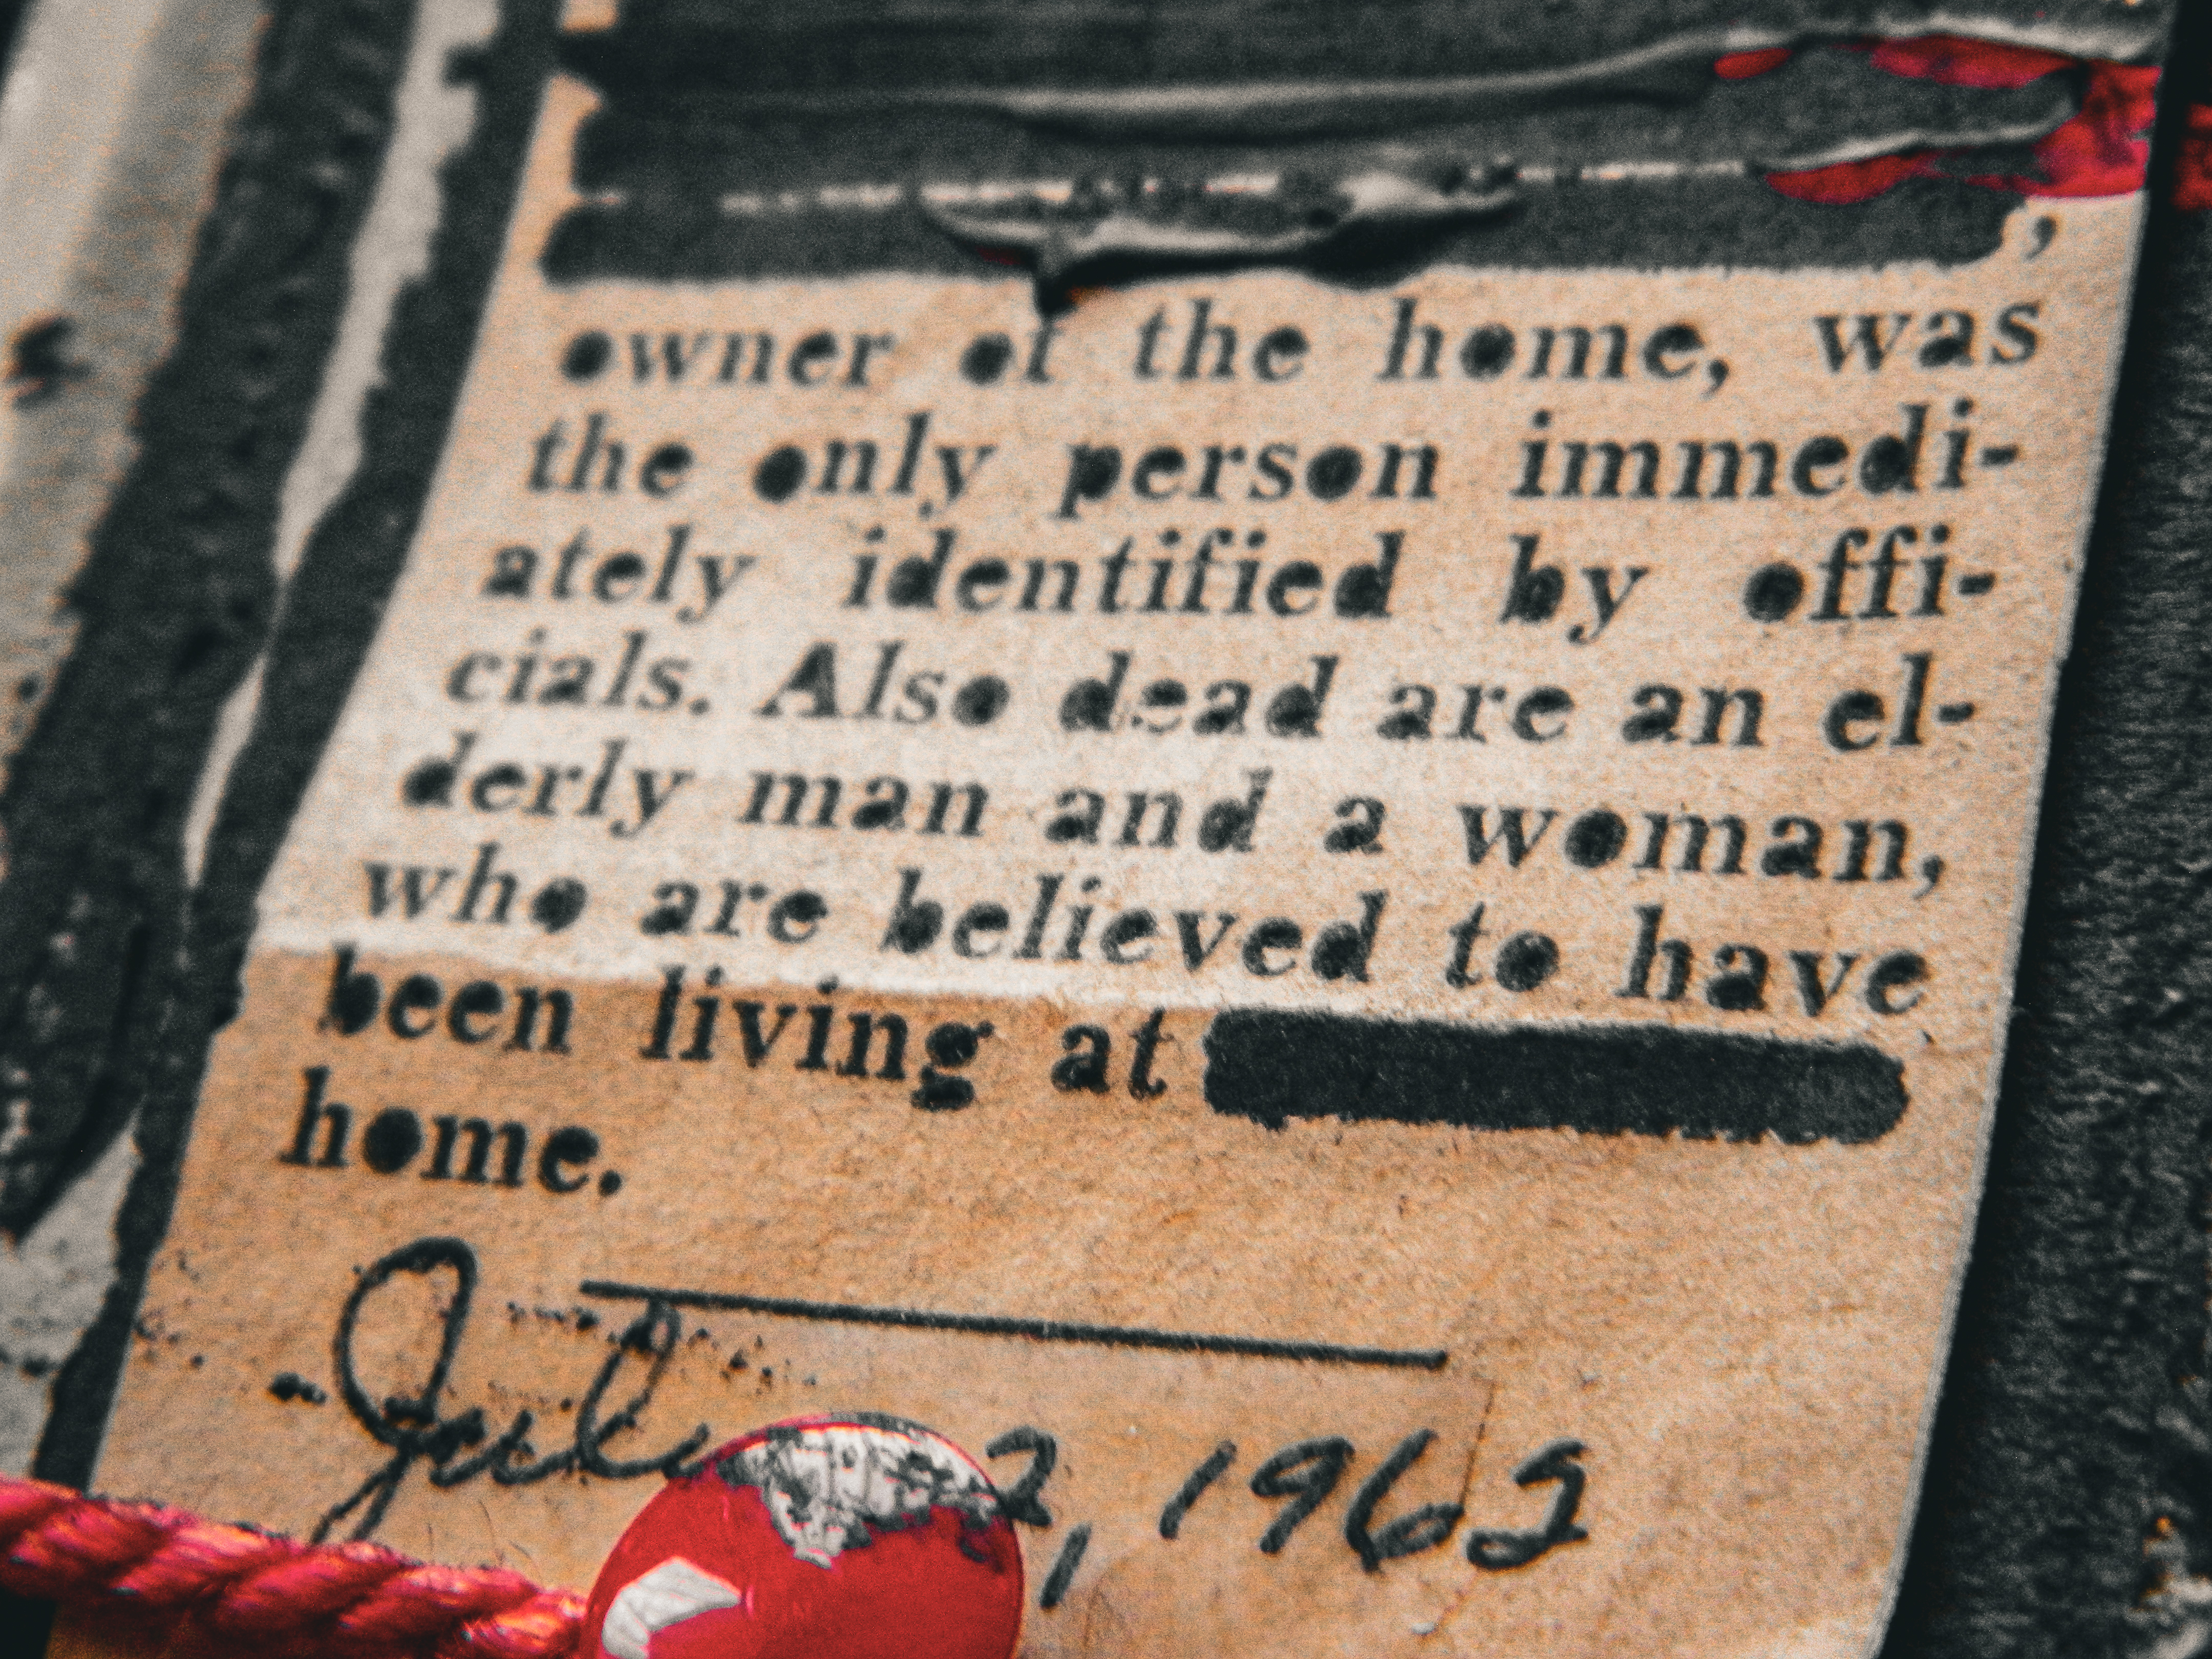 ,
owner of the home, was
the only person immedi-
ately identified by offi-
cials. Also dead are an el-
derly man and a woman,
who are believed to have
been living at
home.
2, 1962